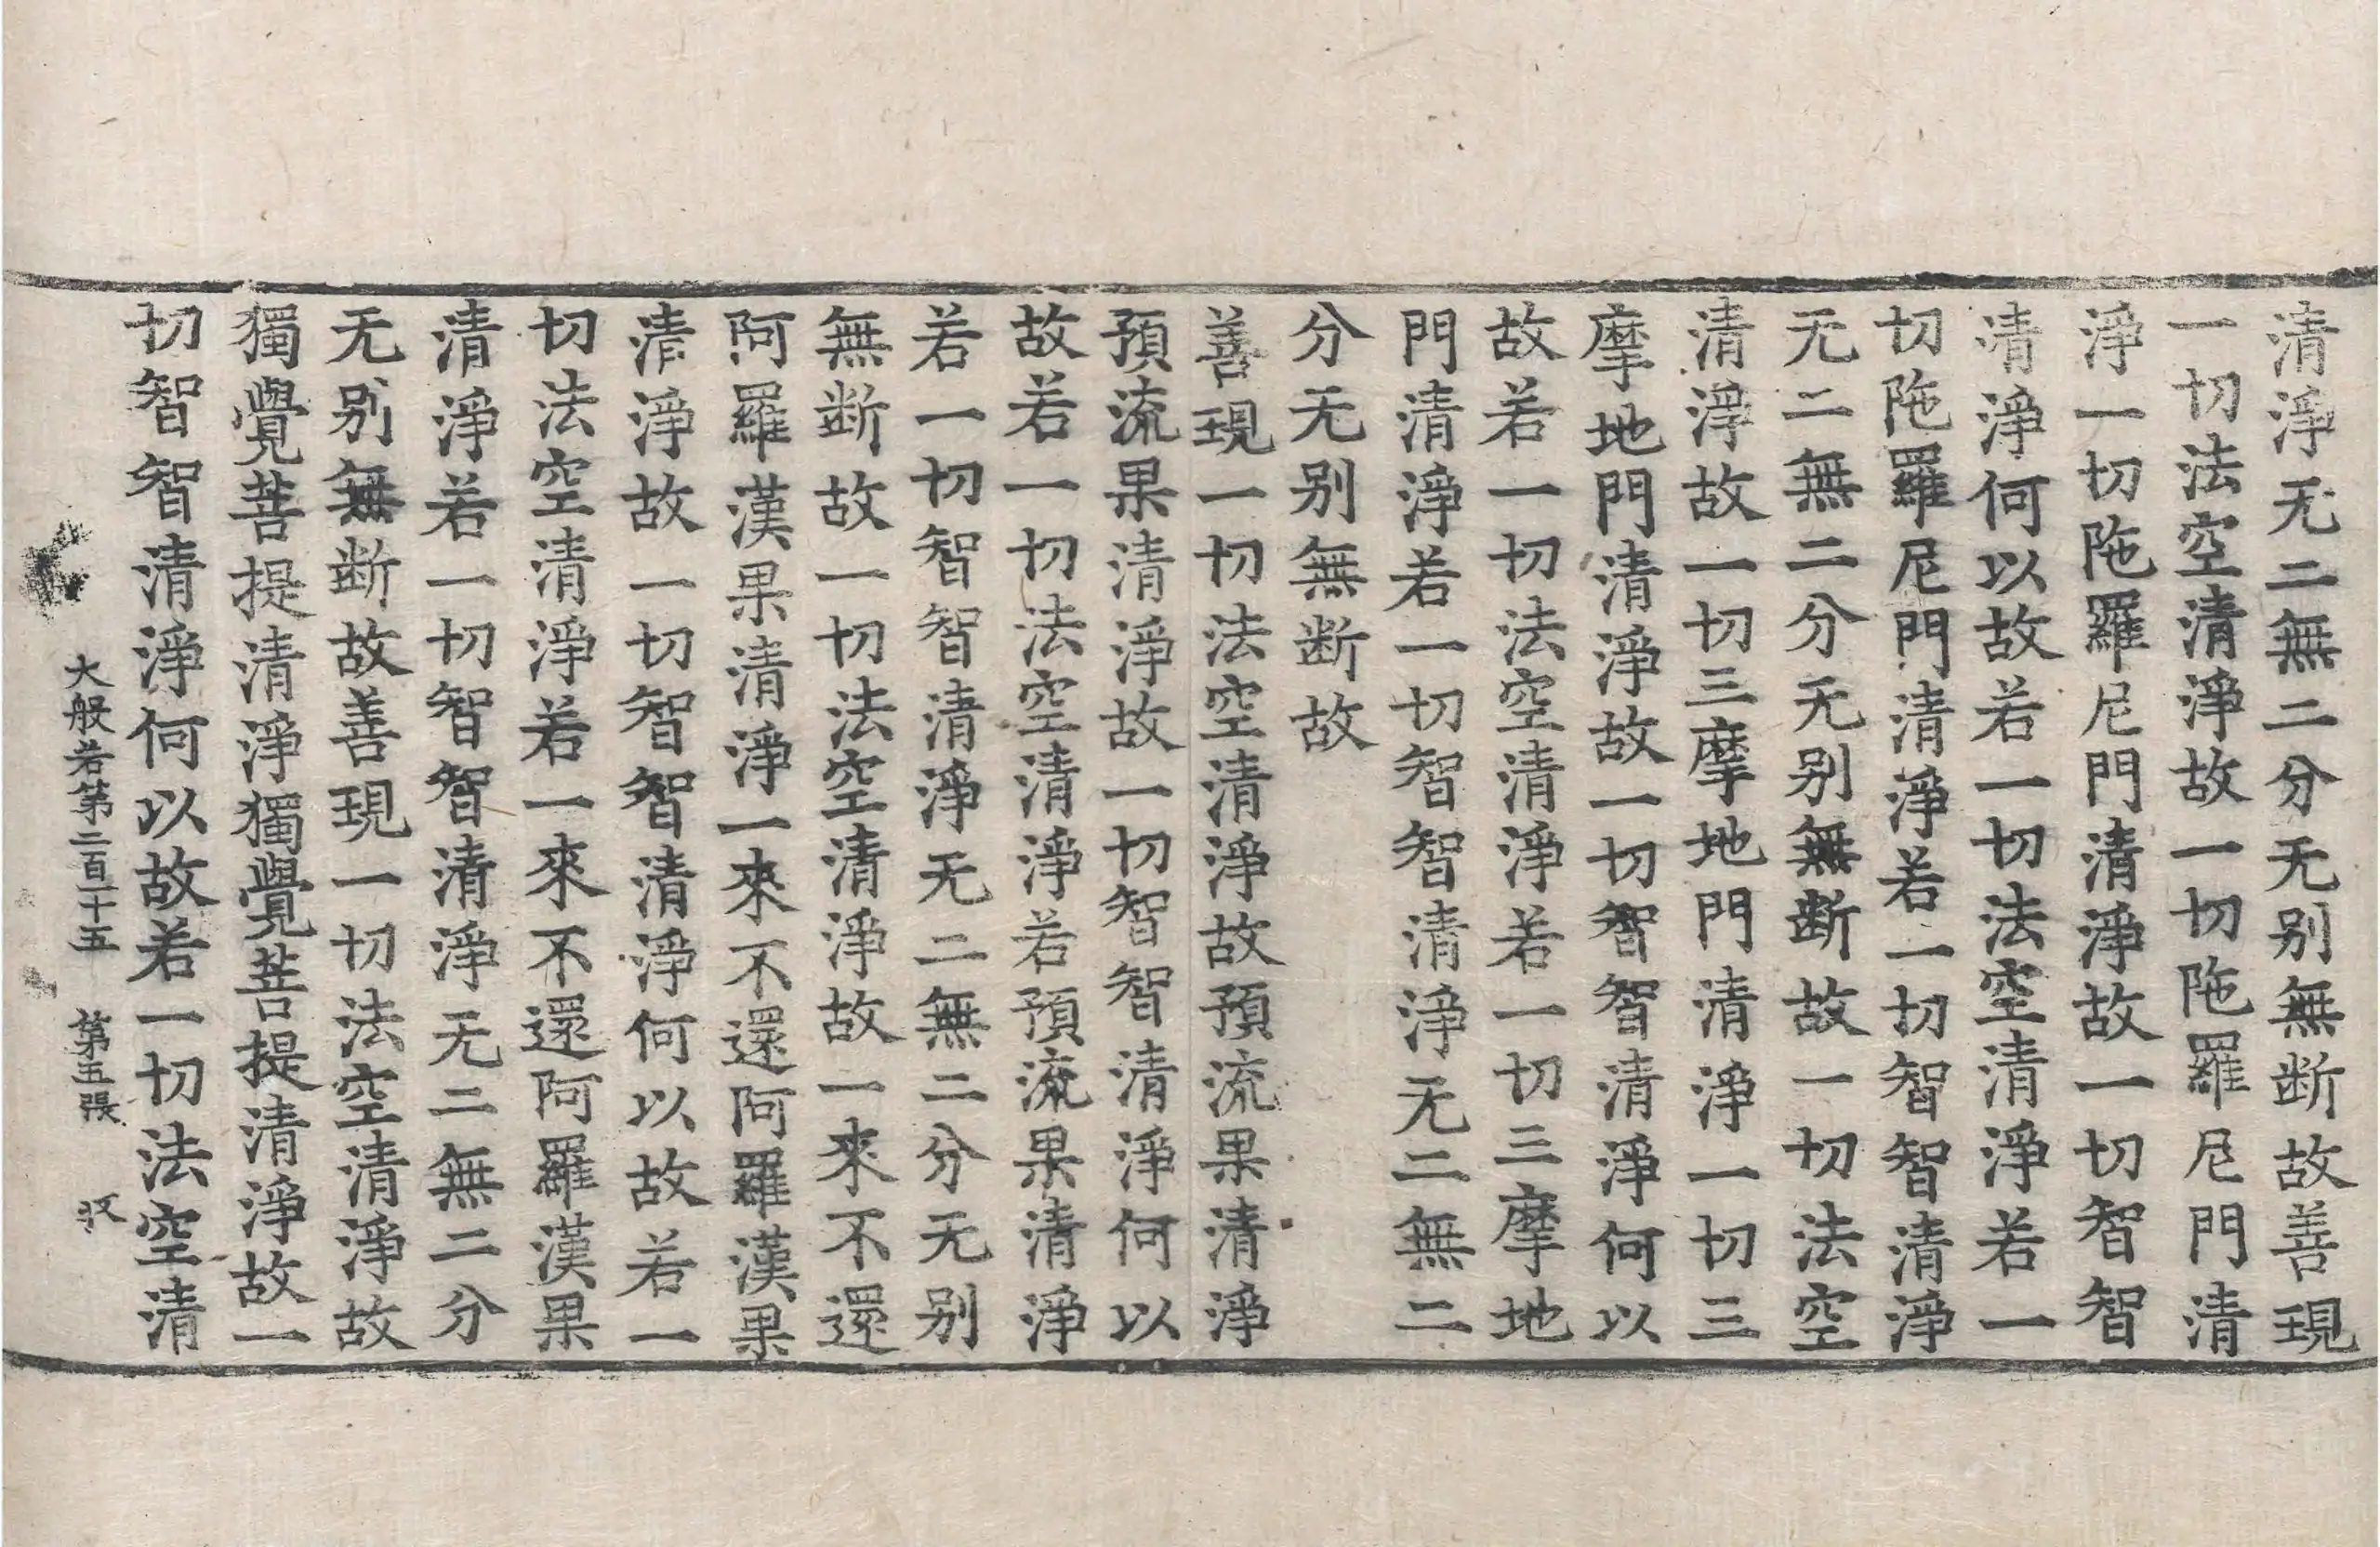 清淨无二無二分无别無断故善現
一切法空清淨故一切陁羅尼門清
淨一切陁羅尼門清淨故一切智智
清淨何以故若一切法空清淨若一
切陁羅尼門清淨若一切智智清淨
无二無二分无别無断故一切法空
清淨故一切三摩地門清淨一切三
摩地門清淨故一切智智清淨何以
故若一切法空清淨若一切三摩地
門清淨若一切智智清淨无二無二
分无别無断故
善現一切法空清淨故預流果清淨
預流果清淨故一切智智清淨何以
故若一切法空清淨若預流果清淨
若一切智智清淨无二無二分无别
無断故一切法空清淨故一來不還
阿羅漢果清淨一來不還阿羅漢果
清淨故一切智智清淨何以故若一
切法空清淨若一來不還阿羅漢果
清淨若一切智智清淨无二無二分
无别無断故善現一切法空清淨故
獨覺菩提清淨獨覺菩提清淨故一
切智智清淨何以故若一切法空清
大般若第二百十五 第五張